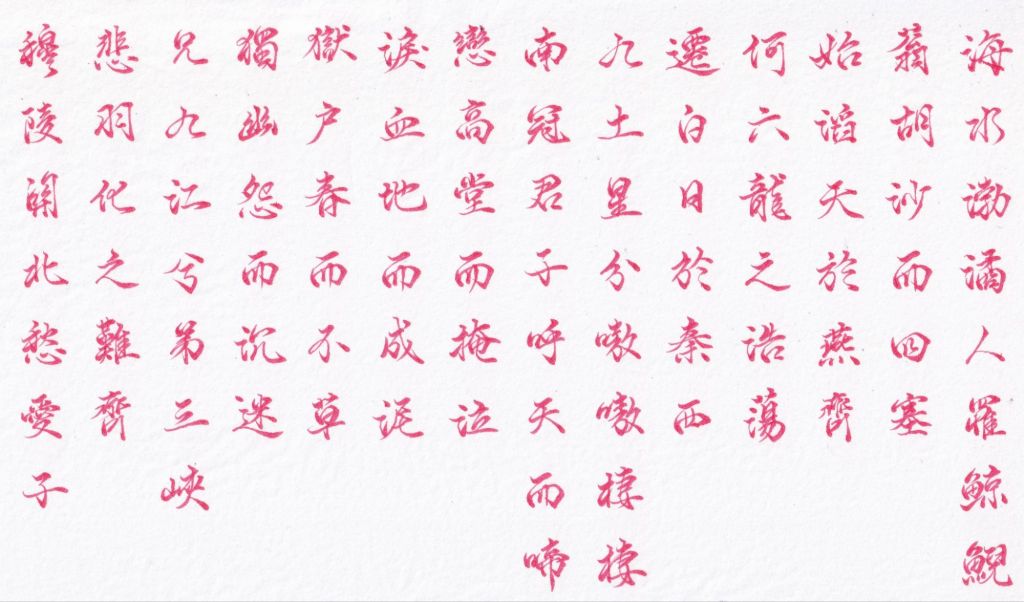 海水渤潏人罹鯨鯢
蓊胡沙而四塞
始滔天於燕齊
何六龍之浩蕩
遷白日於秦西
九土星分嗷嗷棲棲
南冠君子呼天而啼
戀高堂而掩泣
淚血地而成泥
獄户春而不草
獨幽怨而沉迷
兄九江兮弟三峽
悲羽化之難齊
穆陵關北愁愛子